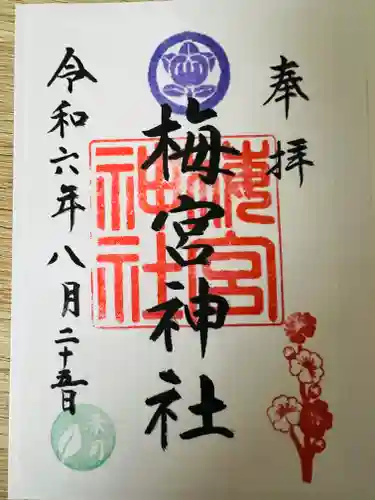 奉拝
梅宮神社
梅宮
神社
令和六年八月二十五日